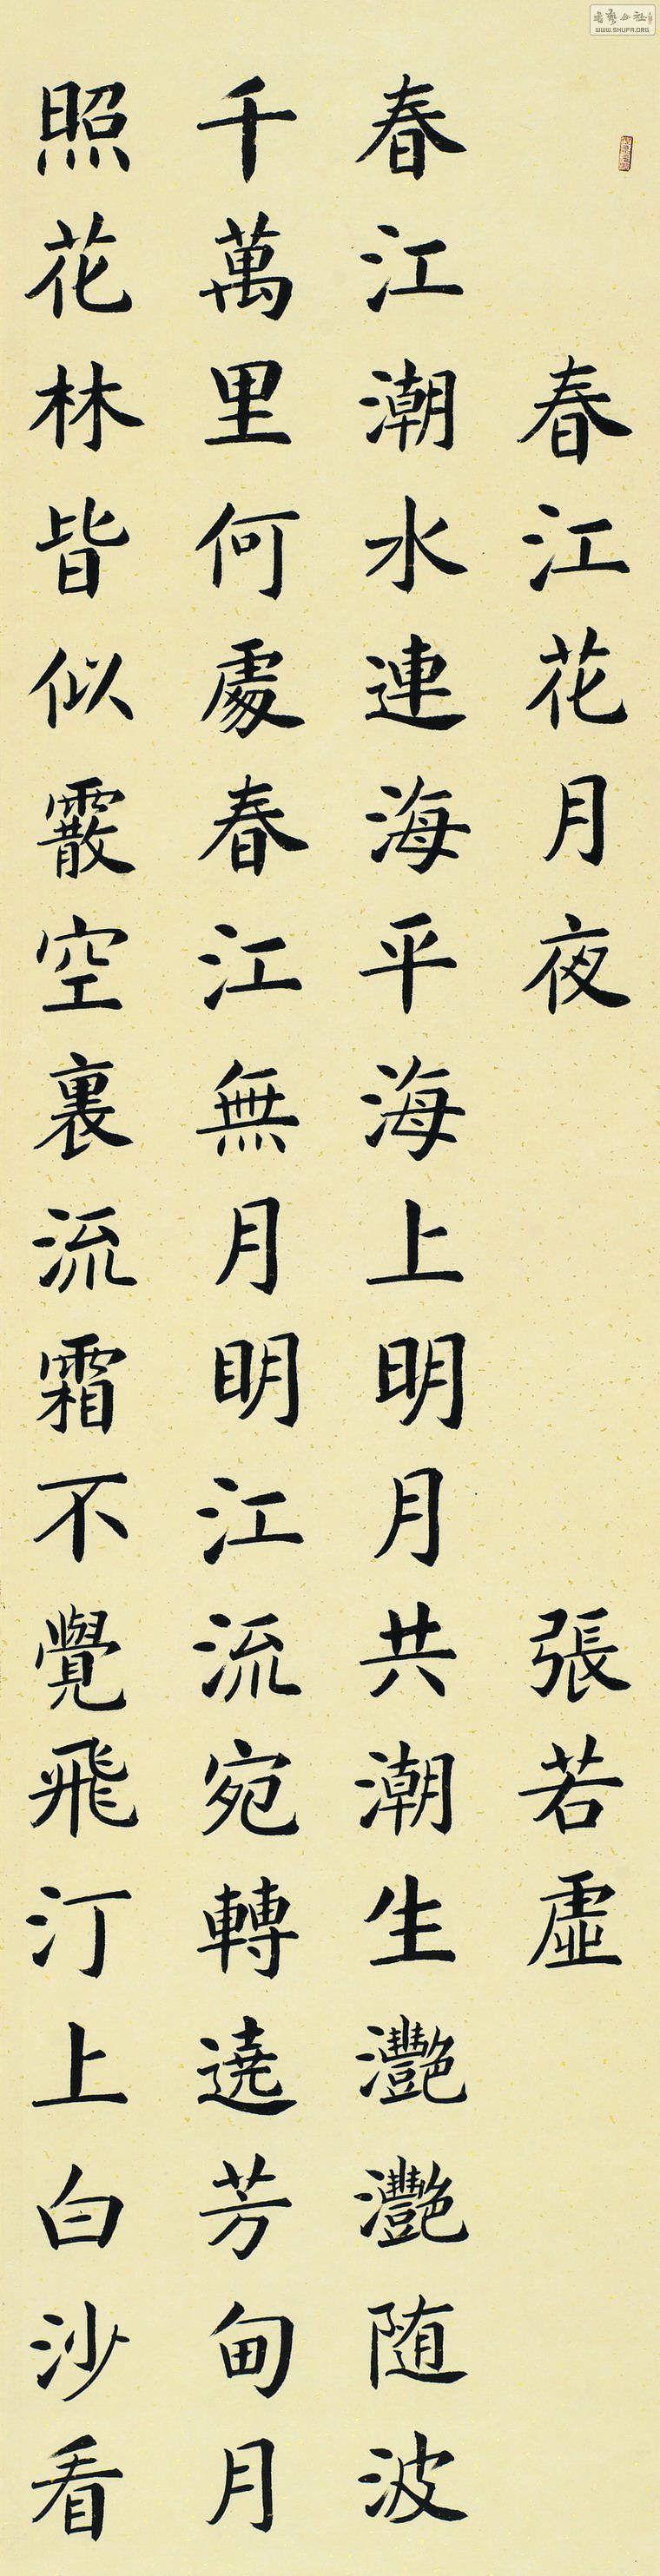 春江花月夜 張若虛
春江潮水連海平海上明月共潮生灔灔随波
千萬里何處春江無月明江流宛轉遶芳甸月
照花林皆似霰空裏流霜不覺飛汀上白沙看
WWW.SHUFA.ORG